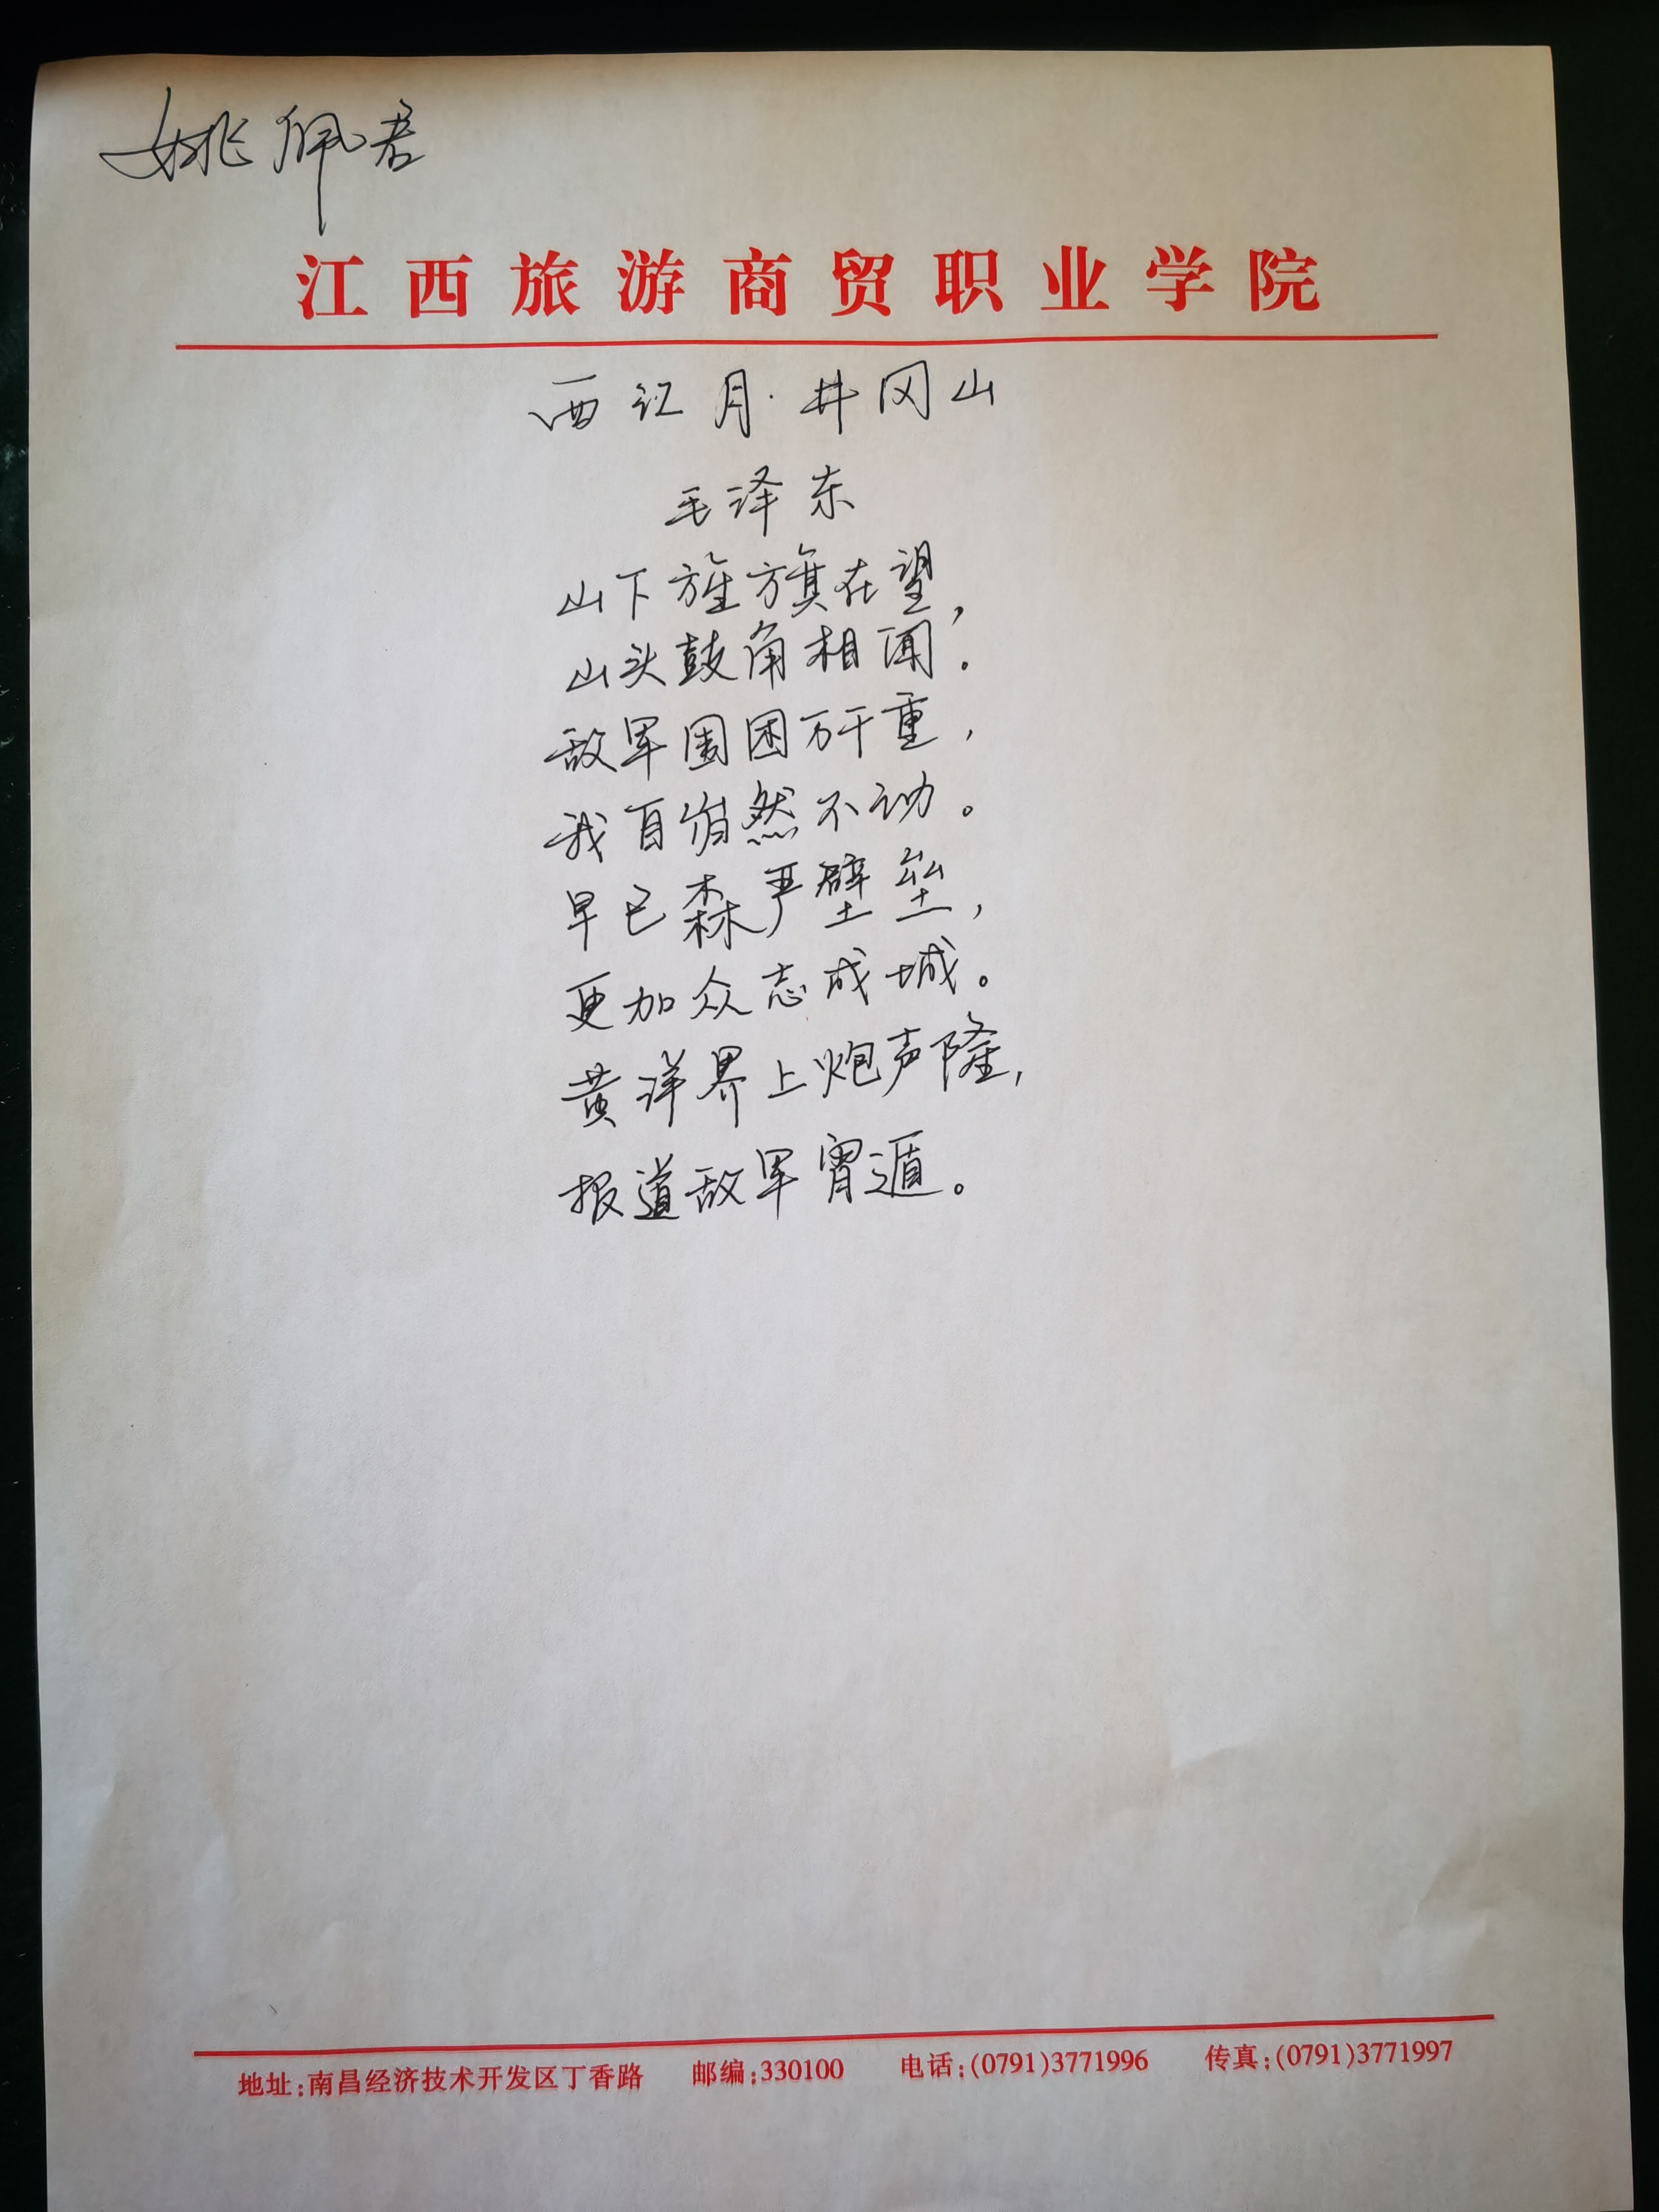 姚佩君
江西旅游商贸职业学院
西江月·井冈山
毛泽东
山下旌旗在望，
山头鼓角相闻。
敌军围困万千重，
我自岿然不动。
早已森严壁垒，
更加众志成城。
黄洋界上炮声隆，
报道敌军宵遁。
地址：南昌经济技术开发区丁香路 邮编：330100 电话：(0791)3771996 传真：(0791)3771997